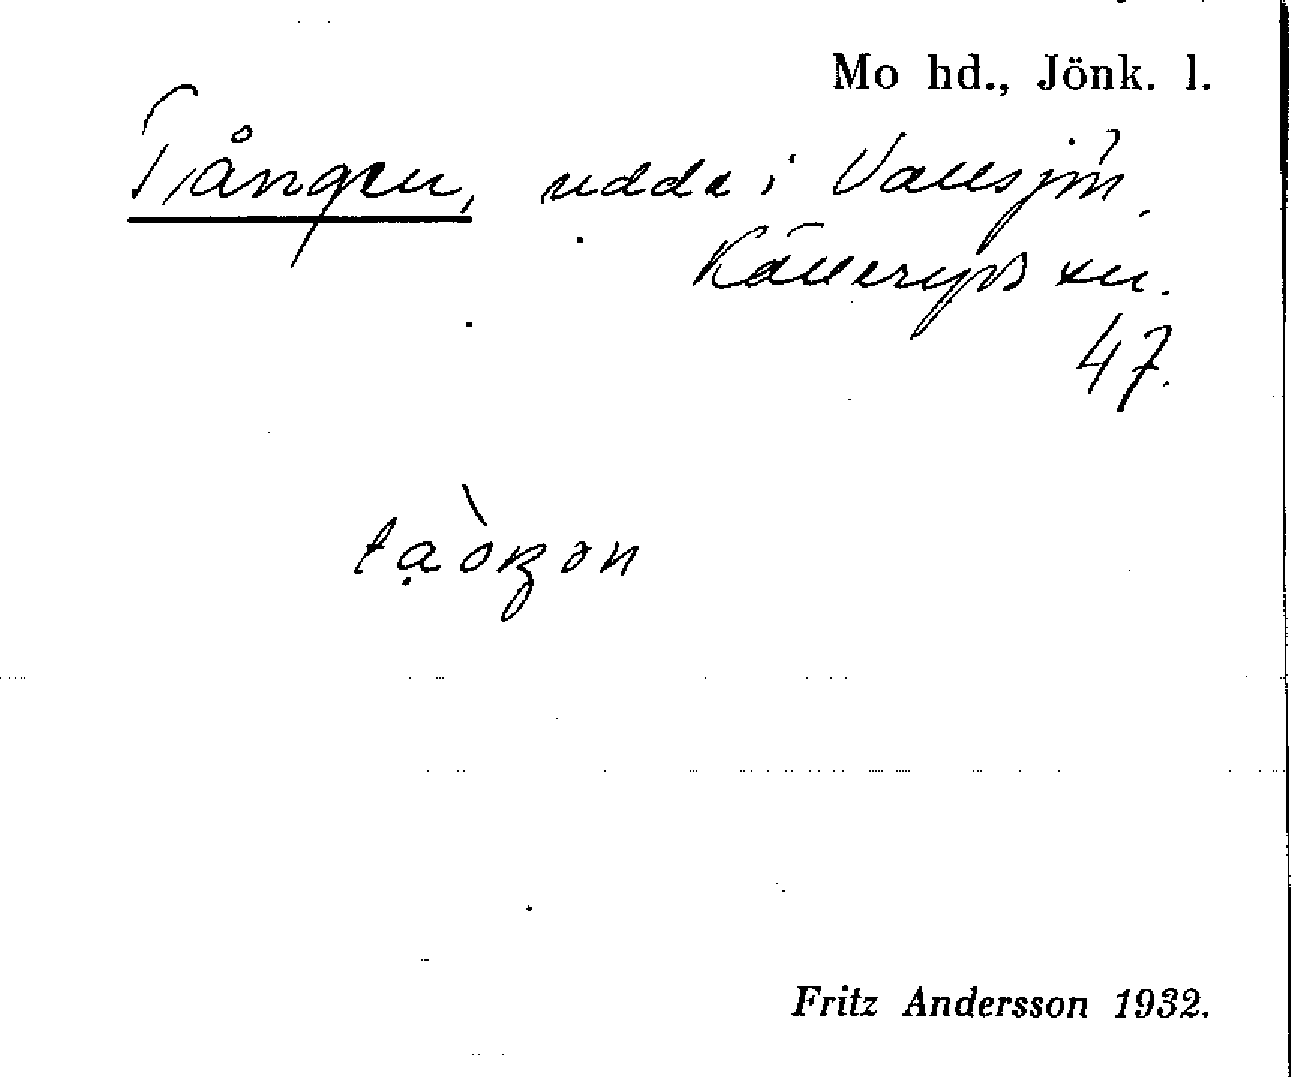 Mo hd., Jönk. l.
Tången, udde i Vallsjön.
Källeryds sn.
47.
Fritz Andersson 1932.